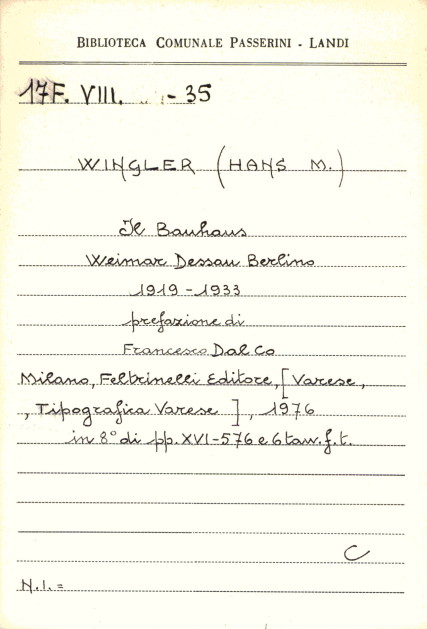 BIBLIOTECA COMUNALE PASSERINI - LANDI
17F. VIII. - 35
WINGLER (HANS M.)
Il Bauhaus
Weimar Dessau Berlino
1919-1933
prefazione di
Francesco Dal Co
Milano, Feltrinelli Editore, [Varese,
, Tipografica Varese], 1976
in 8° di pp. XVI-576 e 6 tavv. f. t.
C
N.I.=